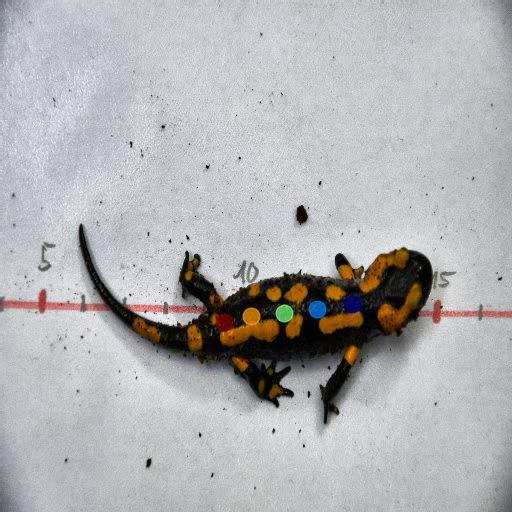 5 10 15